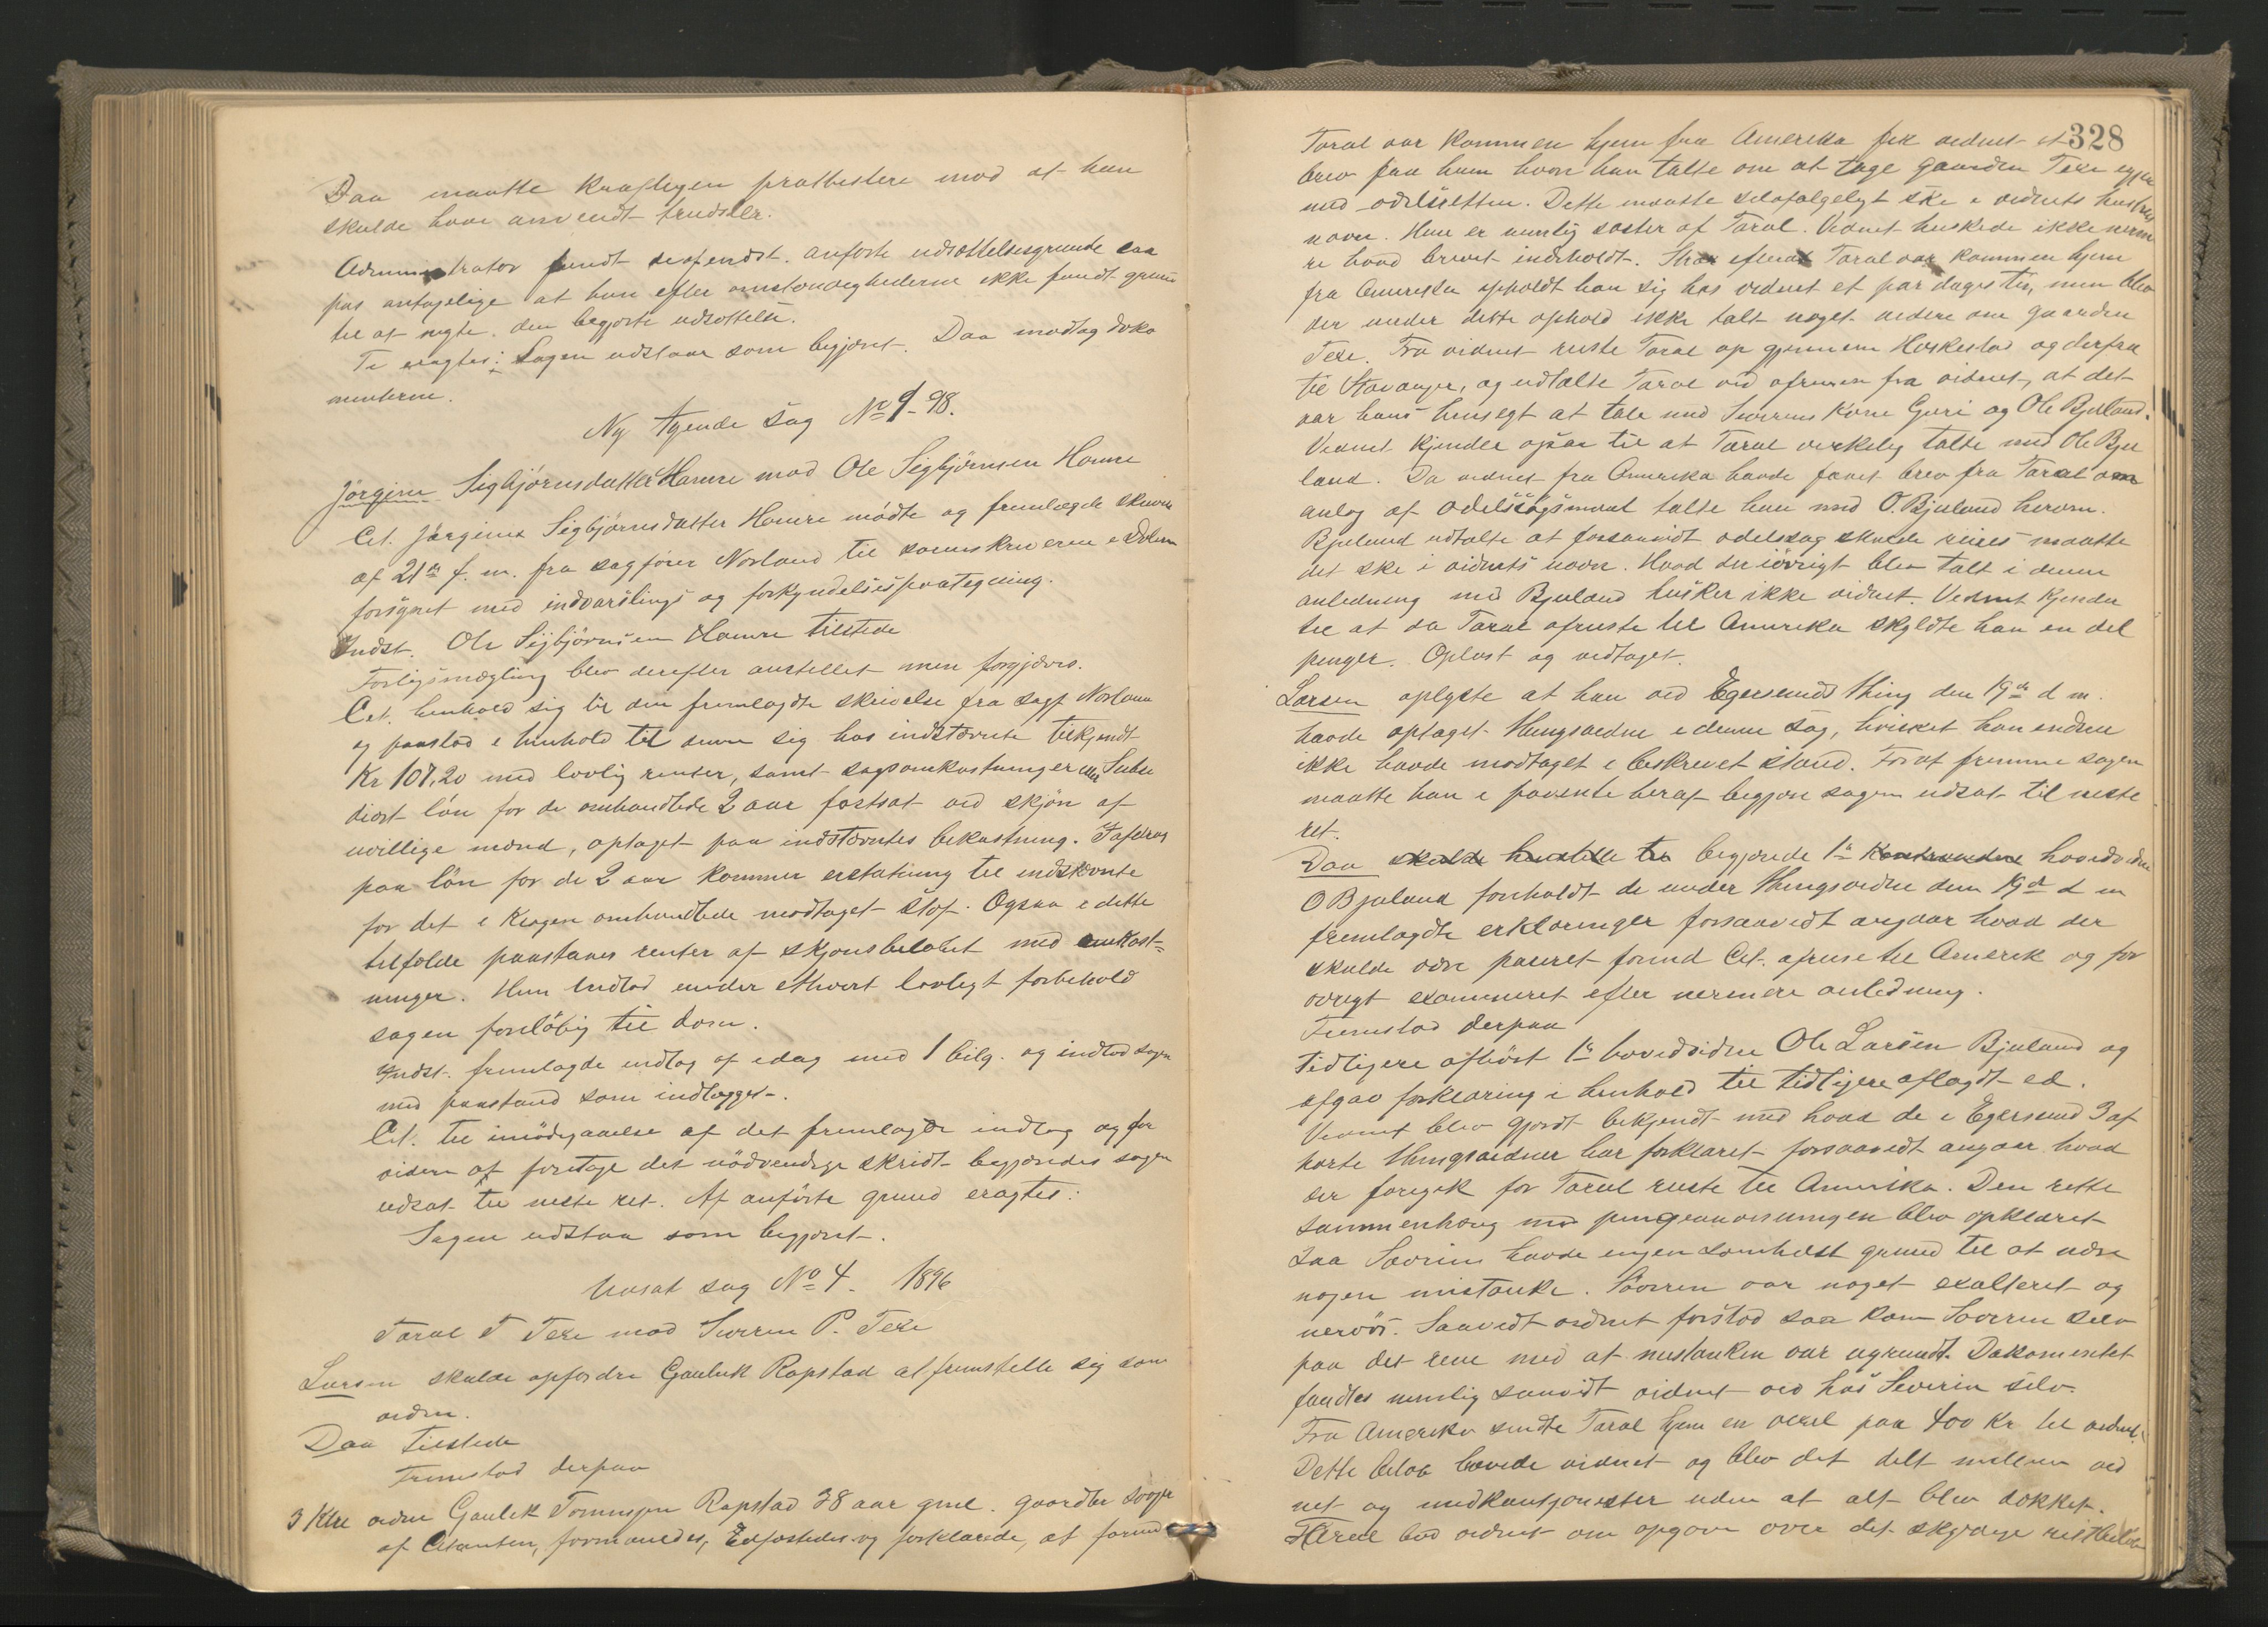 Daa maatte kraftigen prothestere mod at han
skulde have anvendt trudsler.
Administrator fandt de af indst. anførte udsættelsesgrunde saa
pas antagelige at han efter omstændighederne ikke fandt grund
til at negte den begjærte udsættelse.
Ti eragtes: Sagen udstaar som begjæret. Daa modtog doku
menterne.
Ny tgende sag No 9-98.
Jørgine Sigbjørnsdatter Hamre mod Ole Sigbjørnsen Hamre
Cit. Jørgine Sigbjørnsdatter Hamre mødte og fremlagde skrivelse
af 21de f. m. fra sagfører Norland til sorenskriveren i Dalerne
forsynet med indvarslings og forkyndelsespaategning.
Indst. Ole Sigbjørnsen Hamre tilstede
Forligsmægling blev derefter anstillet men forgjæves.
Cit. henhold sig til den fremlagte skrivelse fra sagf. Norland
og paastod i henhold til denne sig hos indstævnte tilkjendt
Kr 107,20 med lovlig renter, samt sagsomkostninger Subsi
diært løn for de omhandlede 2 aar fastsat ved skjøn af
uvillige mænd, optaget paa indstævntes bekostning. I afdrag
paa løn for de 2 aar kommer erstatning til indstævnte
for det i klagen omhandlede modtaget stof. Ogsaa i dette
tilfælde paastaaes renter af skjønsbeløbet med omkost=
ninger. Hun indlod under ethvert lovligt forbehold
sagen foreløbig til dom.
Indst. fremlagde indlæg af idag med 1 bilg. og indlod sagen
med paastand som indlægget.
Cit. til imødegaaelse af det fremlagte indlæg og for
videre at foretage det nødvendige skridt begjæredes sagen
udsat til neste ret. Af anførte grund eragtes:
Sagen udstaa som begjæret.
Udsat sag No 4. 1896
Taral T Texe mod Severin P. Texe
Larsen skulde opfordre Gaulik Rapstad at fremstille sig som
vidne.
Daa tilstede
Fremstod derpaa
3 Kl. vidne Gaulik Tønnesen Rapstad 38 aar gml. gaardbr svoger
af Citanten, formanedes, Edfæstedes og forklarede, at forind
328
Taral var kommen hjem fra Amerika fik vidnet et
brev fra ham hvori han talte om at tage gaarden Texe igjen
med odelsretten. Dette maatte selvfølgeligt ske i vidnets hustrus
navn. Hun er nemlig søster af Taral. Vidnet huskede ikke nerme
re hvad brevet indeholdt. Strax efterat Taral var kommen hjem
fra Amerika opholdt han sig hos vidnet et par dages tid, men blev
der under dette ophold ikke talt noget videre om gaarden
Texe. Fra vidnet reiste Taral op gjennem Heskestad og derfra
til Stavanger, og udtalte Taral ved afreisen fra vidnet, at det
var hans hensigt at tale med Severins kone Guri og Ole Bjuland.
Vidnet kjender ogsaa til at Taral virkelig talte med Ole Bju
land. Da vidnet fra Amerika havde faaet brev fra Taral om
anlæg af odelssøgsmaal talte han med O. Bjuland herom.
Bjuland udtalte at forsaavidt odelssag skulde reises maatte
det ske i vidnets navn. Hvad der iøvrigt blev talt i denne
anledning med Bjuland husker ikke vidnet. Vidnet kjender
til at da Taral afreiste til Amerika skyldte han en del
penger. Oplæst og vedtaget.
Larsen oplyste at han ved Egersunds thing den 19de d m.
havde optaget thingsvidne i denne sag, hvilket han endnu
ikke havde modtaget i beskrevet stand. For at fremme sagen
maatte han i paavente heraf begjære sagen udsat til neste
ret.
Daa begjærede 1ste hovedvidne
O Bjuland foreholdt de under thingsvidne den 19de d m
fremlagdte erklæringer forsaavidt angaar hvad der
skulde være passeret forind Cit. afreise til Amerik og for
øvrigt examineret efter nermere anledning.
Fremstod derpaa
tidligere afhørt 1ste hovedvidne Ole Larsen Bjuland og
afgav forklaring i henhold til tidligere aflagdt ed.
Vidnet blev gjordt bekjendt med hvad de i Egersund 3 af
hørte thingsvidner har forklaret forsaavidt angaar hvad
der foregik før Taral reiste til Amerika. Den rette
sammenhæng med pengeanvisningen blev opklaret
saa Severin havde ingen somhelst grund til at nære
nogen mistanke. Severin var noget exalteret og
nervøs. Saavidt vidnet forstod saa kom Severin selv
paa det rene med at mistanken var ugrundt. Dokumentet
fandtes nemlig saavidt vidnet ved hos Severin selv.
Fra Amerika sendte Taral hjem en vexel paa 400 Kr til vidnet.
Dette beløb hævede vidnet og blev det delt mellem vid
net og medkautionister uden at alt blev dækket.
Taral bad vidnet om opgave over det skyldige restbeløb